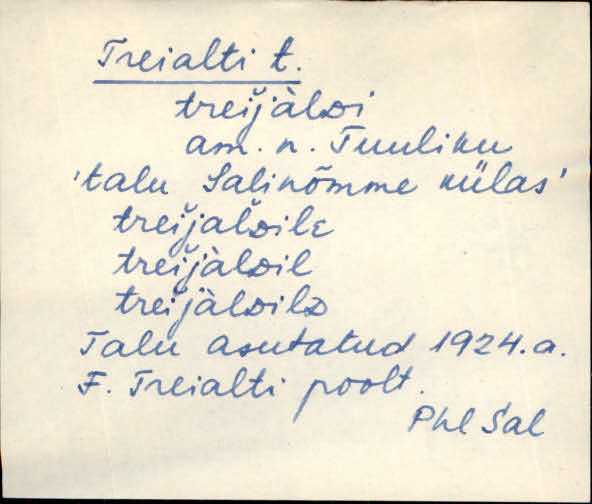 Treialti t.
treijàlᴅi
am. n. Tuuliku
'talu Salinõmme külas'
treijaʟᴅile
treijàlᴅil
treijàlᴅilᴅ
Talu asutatud 1924. a.
F. Treialti poolt.
Phl Sal